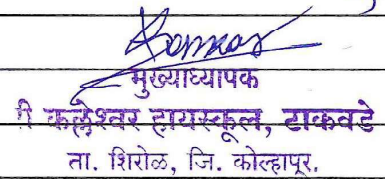 मुख्याध्यापक
कल्लेश्वर हायस्कूल, टाकवडे
ता. शिरोळ, जि. कोल्हापूर.